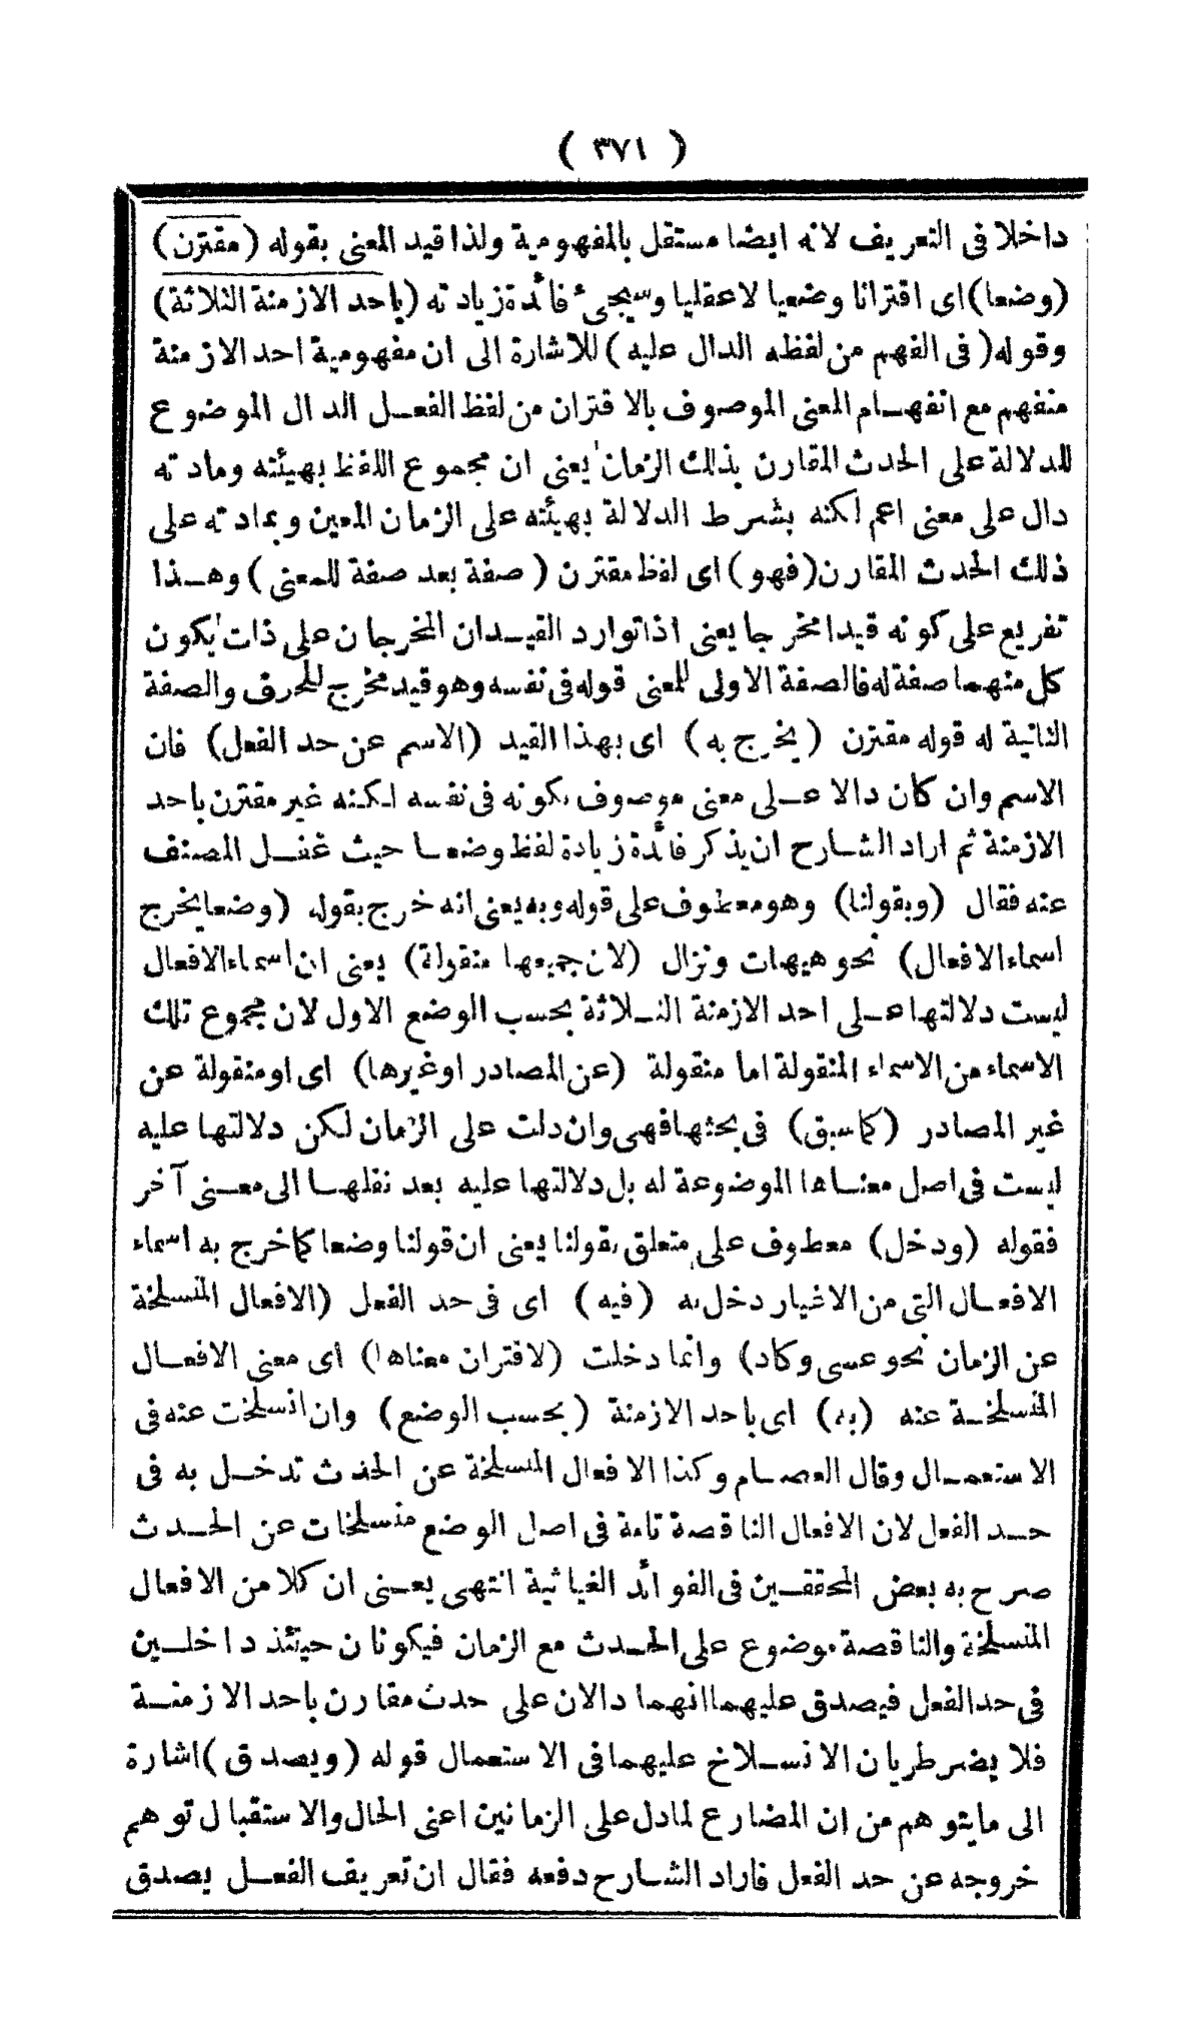 ( ٣٧١ )
داخلا فى التعريف لانه ايضا مستقل بالمفهومية ولذا قيد المعنى بقوله (مقترن)
(وضعا) اى اقترانا وضعيا لا عقليا وسيجئ فائدة زيادته (باحد الازمنة الثلاثة)
وقوله (فى الفهم من لفظه الدال عليه) للاشارة الى ان مفهومية احد الازمنة
منفهم مع انفهام المعنى الموصوف بالاقتران من لفظ الفعل الدال الموضوع
للدلالة على الحدث المقارن بذلك الزمان يعنى ان مجموع اللفظ بهيئته ومادته
دال على معنى اعم لكنه بشرط الدلالة بهيئته على الزمان المعين وبمادته على
ذلك الحدث المقارن (فهو) اى لفظ مقترن (صفة بعد صفة للمعنى) وهذا
تفريع على كونه قيدا مخرجا يعنى اذا توارد القيدان المخرجان على ذات يكون
كل منهما صفة له فالصفة الاولى للمعنى قوله فى نفسه وهو قيد مخرج للحرف والصفة
الثانية له قوله مقترن (يخرج به) اى بهذا القيد (الاسم عن حد الفعل) فان
الاسم وان كان دالا على معنى موصوف بكونه فى نفسه لكنه غير مقترن باحد
الازمنة ثم اراد الشارح ان يذكر فائدة زيادة لفظ وضعا حيث غفل المصنف
عنه فقال (وبقولنا) وهو معطوف على قوله وبه يعنى انه خرج بقوله (وضعا يخرج
اسماء الافعال) نحو هيهات ونزال (لان جميعها منقولة) يعنى ان اسماء الافعال
ليست دلالتها على احد الازمنة الثلاثة بحسب الوضع الاول لان مجموع تلك
الاسماء من الاسماء المنقولة اما منقولة (عن المصادر او غيرها) اى او منقولة عن
غير المصادر (كما سبق) فى بحثها فهى وان دلت على الزمان لكن دلالتها عليه
ليست فى اصل معناها الموضوعة له بل دلالتها عليه بعد نقلها الى معنى آخر
فقوله (ودخل) معطوف على متعلق بقولنا يعنى ان قولنا وضعا كما خرج به اسماء
الافعال التى من الاغيار دخل به (فيه) اى فى حد الفعل (الافعال المنسلخة
عن الزمان نحو عسى وكاد) وانما دخلت (لاقتران معناها) اى معنى الافعال
المنسلخة عنه (به) اى باحد الازمنة (بحسب الوضع) وان انسلخت عنه فى
الاستعمال وقال العصام وكذا الافعال المنسلخة عن الحدث تدخل به فى
حد الفعل لان الافعال الناقصة تامة فى اصل الوضع منسلخات عن الحدث
صرح به بعض المحققين فى الفوائد الغياثية انتهى يعنى ان كلا من الافعال
المنسلخة والناقصة موضوع على الحدث مع الزمان فيكونان حينئذ داخلين
فى حد الفعل فيصدق عليهما انهما دالان على حدث مقارن باحد الازمنة
فلا يضر طريان الانسلاخ عليهما فى الاستعمال قوله (ويصدق) اشارة
الى ما يتوهم من ان المضارع لما دل على الزمانين اعنى الحال والاستقبال توهم
خروجه عن حد الفعل فاراد الشارح دفعه فقال ان تعريف الفعل يصدق